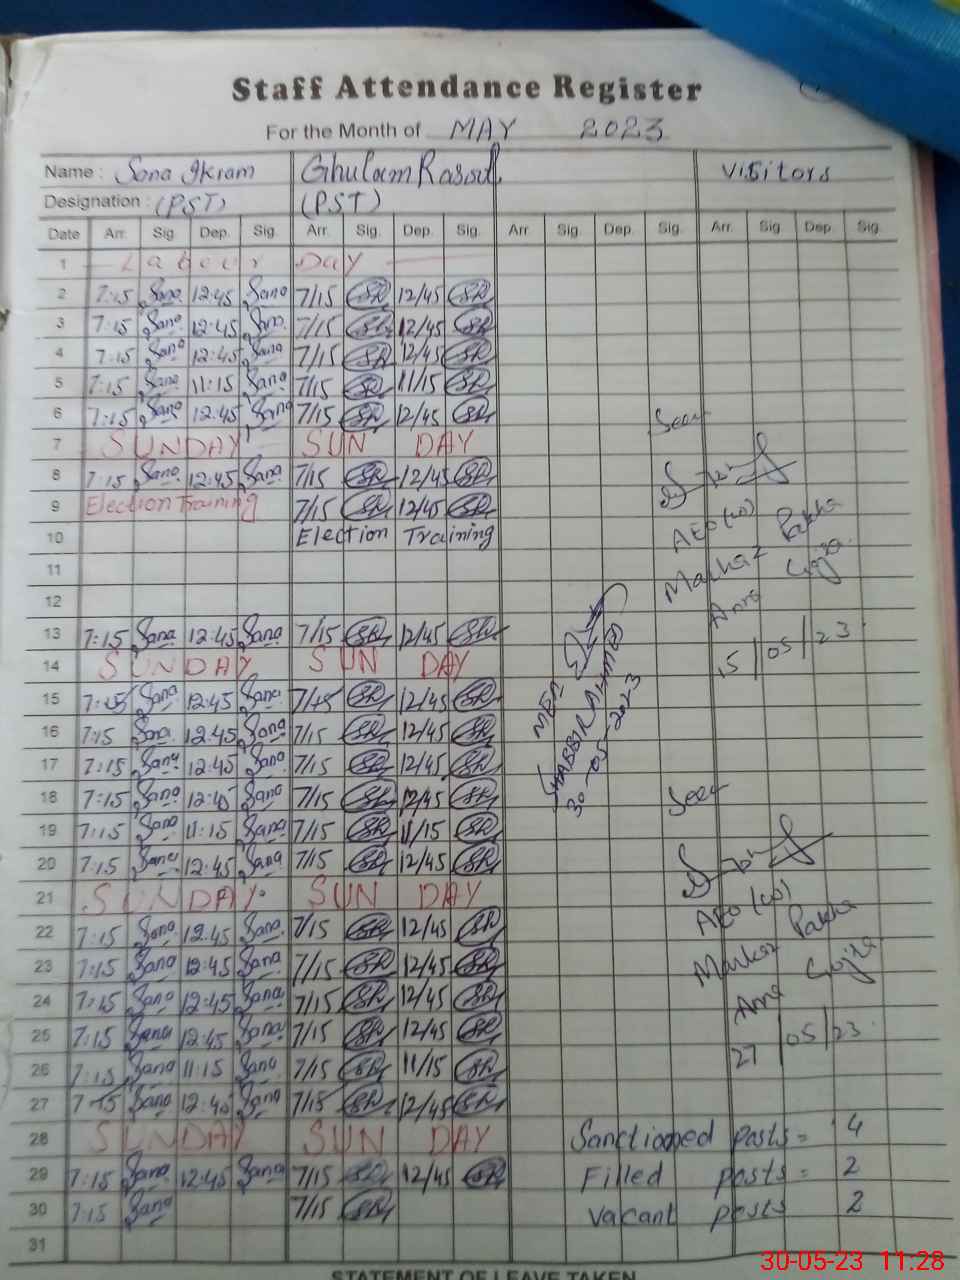 Staff Attendance Register
For the Month of MAY 2023
Name : Sana Ikram Ghulam Rasool Visitors
Designation : (PST) (PST)
Date Arr. Sig. Dep. Sig. Arr. Sig. Dep. Sig. Arr. Sig. Dep. Sig. Arr. Sig. Dep. Sig.
1 Labour Day
2 7:15 Sana 12:45 Sana 7/15 12/45
3 7:15 Sana 12:45 Sana 7/15 12/45
4 7:15 Sana 12:45 Sana 7/15 12/45
5 7:15 Sana 11:15 Sana 7/15 11/15
6 7:15 Sana 12:45 Sana 7/15 12/45 Seen
7 SUNDAY SUN DAY
8 7:15 Sana 12:45 Sana 7/15 12/45
9 Election Training 7/15 12/45
10 Election Training AEO (W)
11 Markaz Pakka
12 Anna
13 7:15 Sana 12:45 Sana 7/15 12/45
14 SUNDAY SUN DAY 15/05/23
15 7:15 Sana 12:45 Sana 7/15 12/45
16 7:15 Sana 12:45 Sana 7/15 12/45
MEA
SHABBIR AHMED
30-05-2023
17 7:15 Sana 12:45 Sana 7/15 12/45
18 7:15 Sana 12:45 Sana 7/15 12/45 Seen
19 7:15 Sana 11:15 Sana 7/15 11/15
20 7:15 Sana 12:45 Sana 7/15 12/45
21 SUNDAY SUN DAY
22 7:15 Sana 12:45 Sana 7/15 12/45 AEO (W)
23 7:15 Sana 12:45 Sana 7/15 12/45 Markaz Pakka
24 7:15 Sana 12:45 Sana 7/15 12/45
25 7:15 Sana 12:45 Sana 7/15 12/45 27/05/23
26 7:15 Sana 11:15 Sana 7/15 11/15
27 7:15 Sana 12:45 Sana 7/15 12/45
28 SUNDAY SUN DAY Sanctioned posts = 4
29 7:15 Sana 12:45 Sana 7/15 12/45 Filled posts = 2
30 7:15 Sana 7/15 Vacant posts 2
31
30-05-23 11:28
STATEMENT OF LEAVE TAKEN